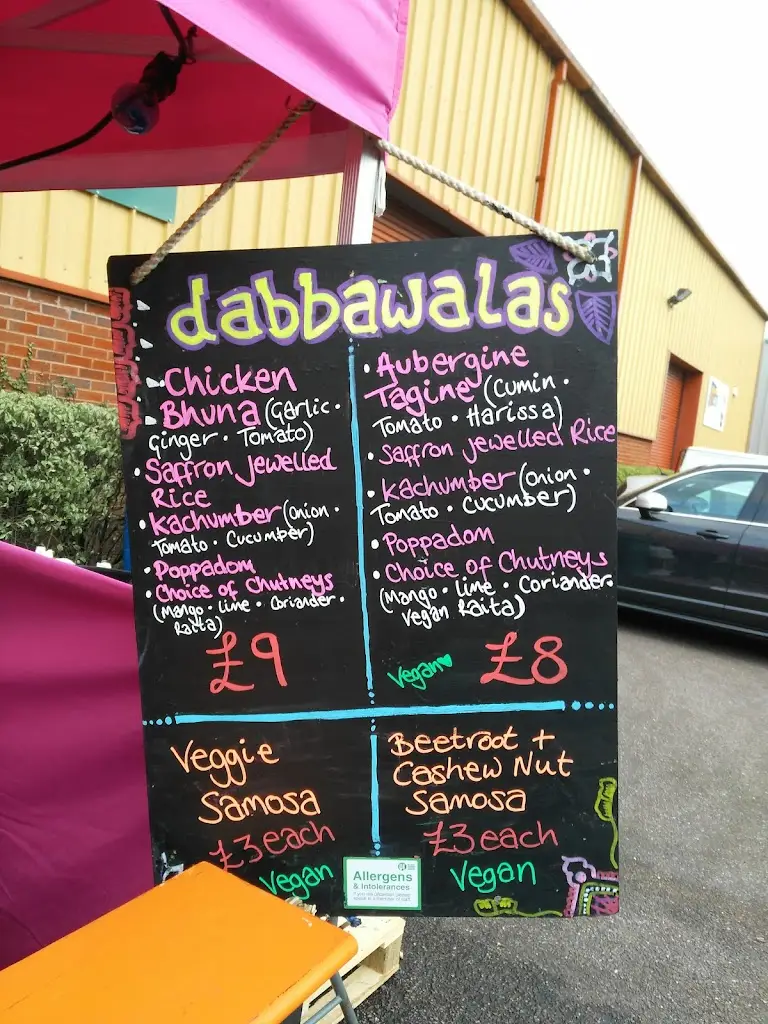 dabbawalas
Chicken
Bhuna (Garlic •
Ginger • Tomato)
• Saffron Jewelled
Rice
• Kachumber (Onion •
Tomato • Cucumber)
• Poppadom
• Choice of Chutneys
(Mango • Lime • Coriander •
Raita)
£9
• Aubergine
Tagine (Cumin •
Tomato • Harissa)
• Saffron Jewelled Rice
• Kachumber (Onion •
Tomato • Cucumber)
• Poppadom
• Choice of Chutneys
(Mango • Lime • Coriander •
Vegan Raita)
Vegan £8
Veggie
Samosa
£3 each
Vegan
Beetroot +
Cashew Nut
Samosa
£3 each
Vegan
Allergens
& Intolerances